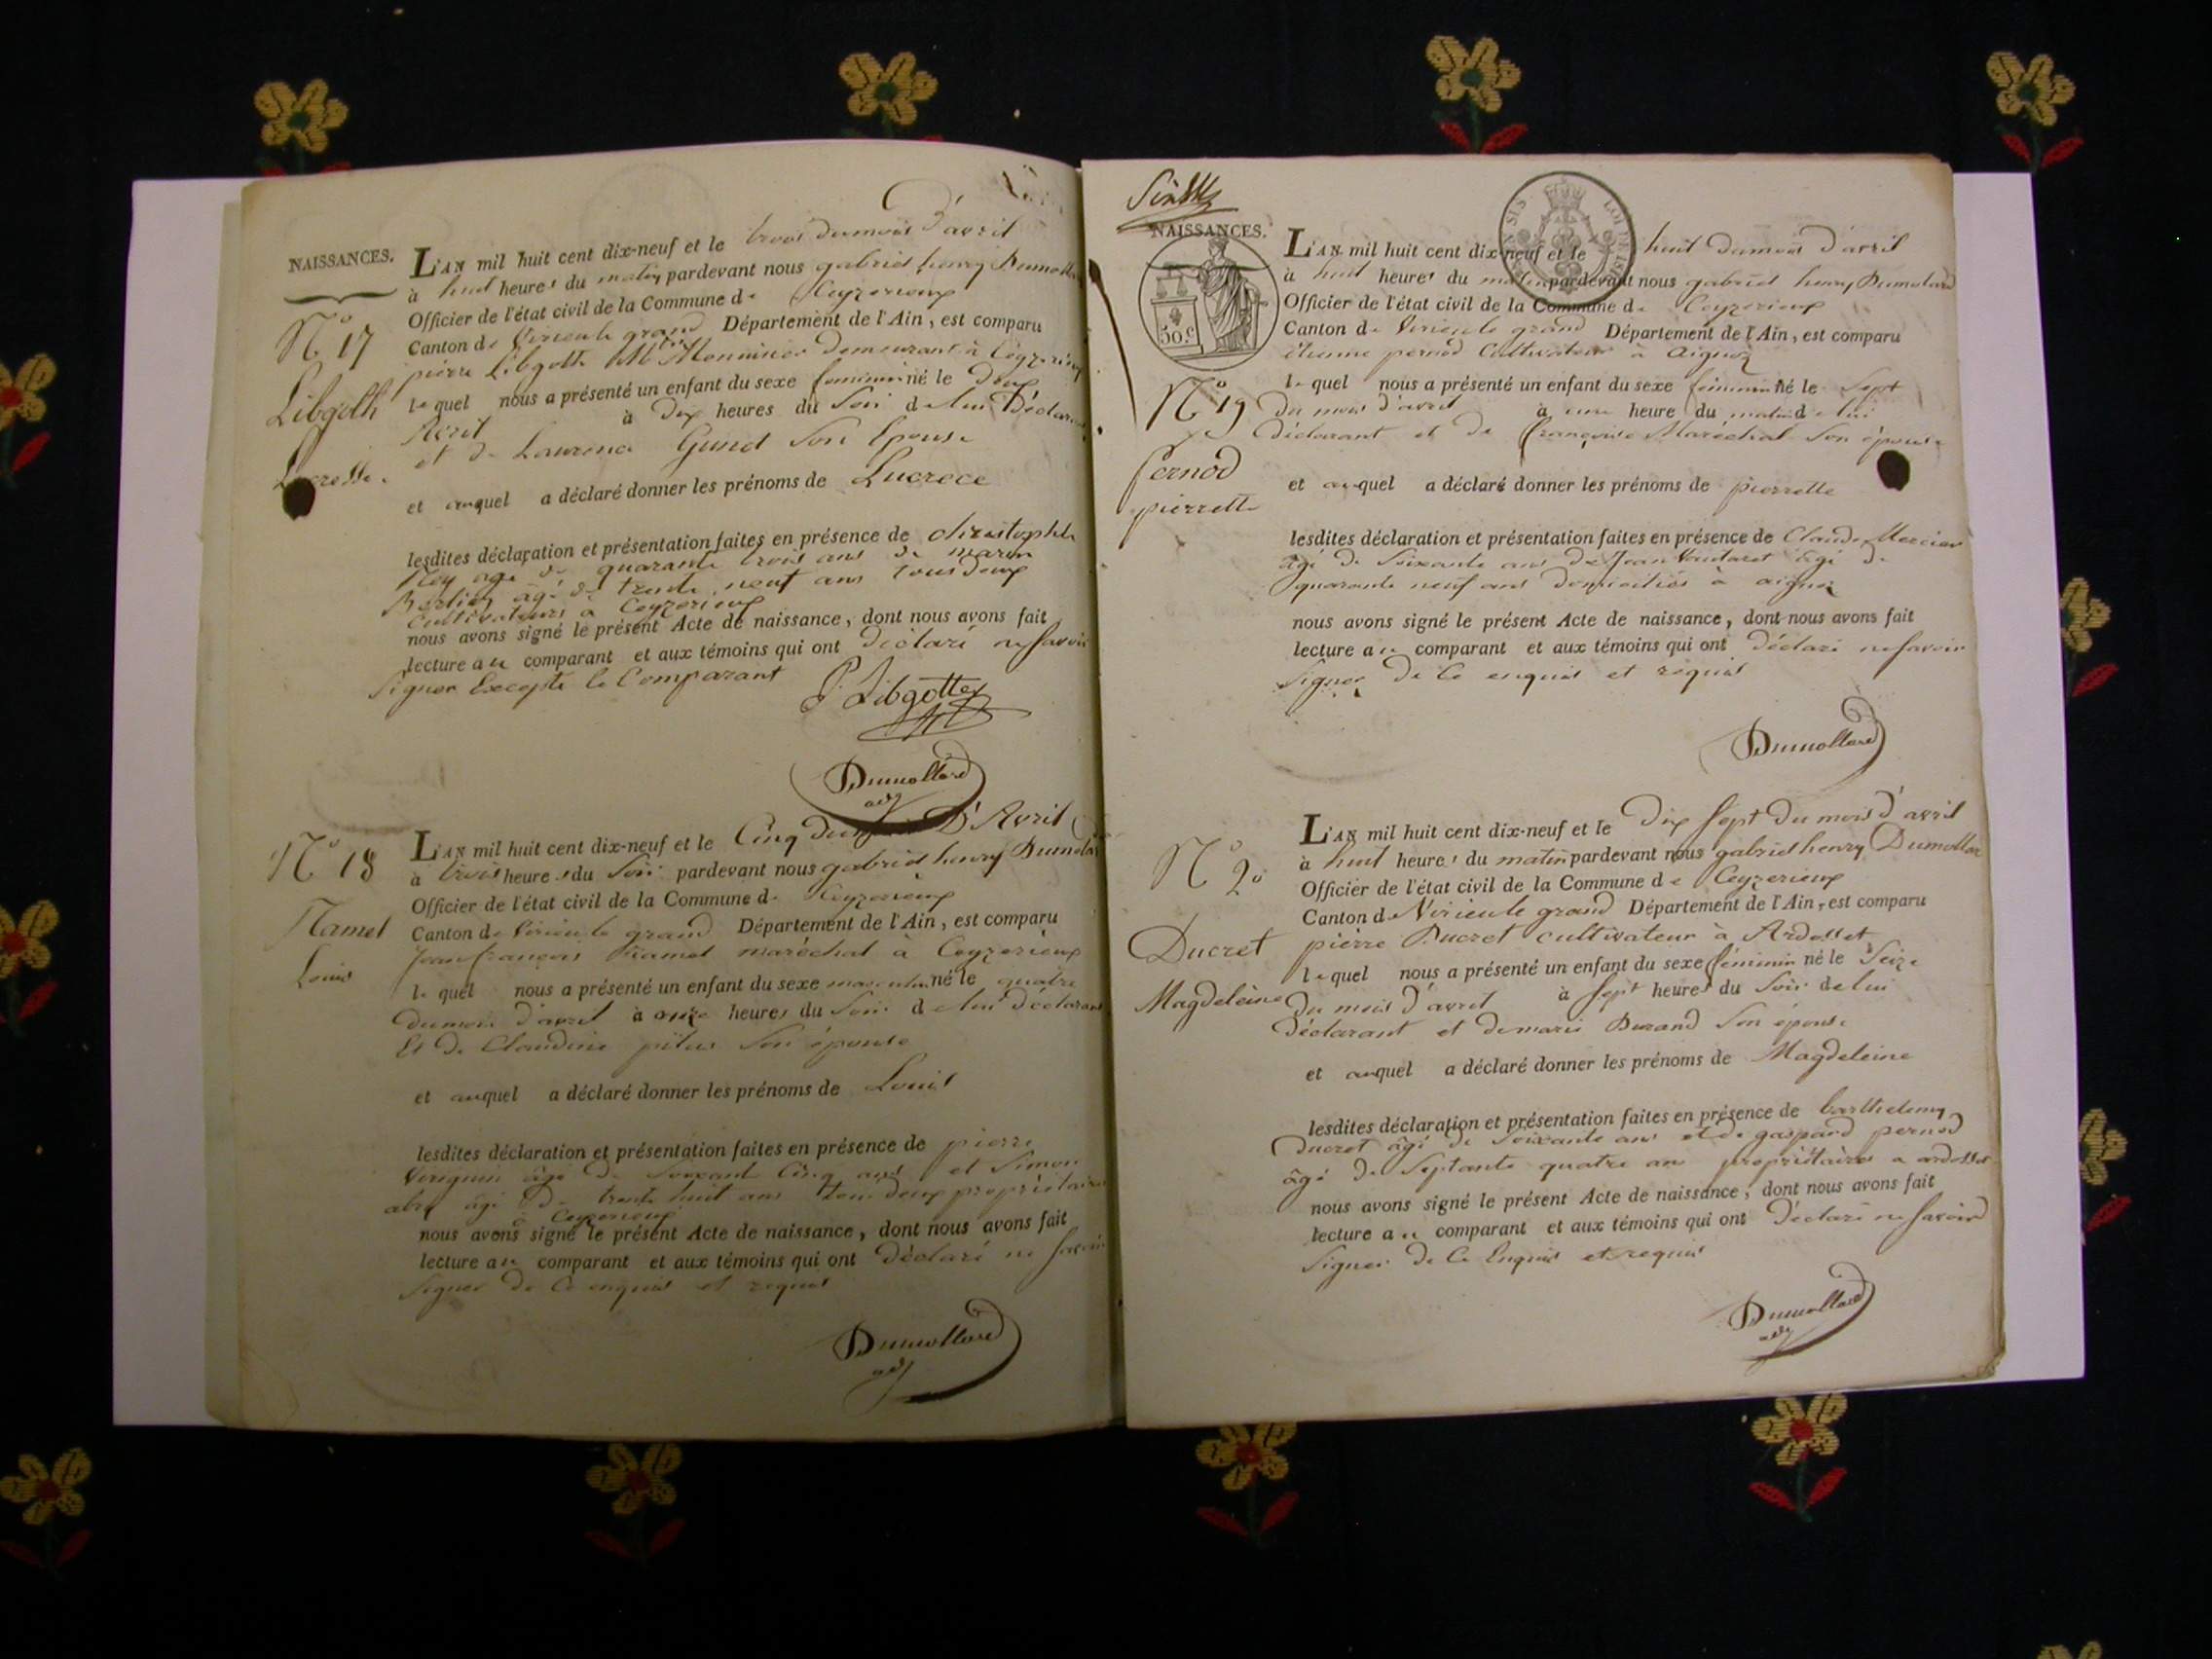 NAISSANCES.
L'AN mil huit cent dix-neuf et le trois du mois d'avril
à huit heures du matin pardevant nous gabriel henry Dumollard
Officier de l'état civil de la Commune de Ceyzerieux
Canton de Virieu le grand Département de l'Ain, est comparu
N.o 17
pierre Libgotte demeurant à Ceyzerieux
lequel nous a présenté un enfant du sexe feminin né le Deux
Libgoth
Avril à dix heures du Soir de lui Déclarant
et de Laurence Son Epouse
et auquel a déclaré donner les prénoms de Lucrece
lesdites déclaration et présentation faites en présence de christophe
Rey agé de quarante trois ans de marin
Berlioz âgé de trente neuf ans tous deux
cultivateurs à Ceyzerieux
nous avons signé le présent Acte de naissance, dont nous avons fait
lecture au comparant et aux témoins qui ont déclaré ne savoir
signer Excepté le Comparant
P. Libgotte
Dumollard
adj
N.o 18
L'AN mil huit cent dix-neuf et le Cinq du mois D'Avril
à trois heures du Soir pardevant nous gabriel henry Dumollard
Officier de l'état civil de la Commune de Ceyzerieux
Canton de Virieu le grand Département de l'Ain, est comparu
Hamel
Louis
Jean françois hamel maréchal à Ceyzerieux
lequel nous a présenté un enfant du sexe masculin né le quatre
du mois d'avril à onze heures du Soir de lui déclarant
Et de Claudine Son épouse
et auquel a déclaré donner les prénoms de Louis
lesdites déclaration et présentation faites en présence de pierre
âgé de Soixante Cinq ans et Simon
âgé de trente huit ans tous deux propriétaires
à Ceyzerieux
nous avons signé le présent Acte de naissance, dont nous avons fait
lecture au comparant et aux témoins qui ont Déclaré ne savoir
signer de Ce enquis et requis
Dumollard
adj
NAISSANCES.
50.c
L'AN mil huit cent dix-neuf et le huit du mois d'avril
à huit heures du matin pardevant nous gabriel henry Dumolard
Officier de l'état civil de la Commune de Ceyzerieux
Canton de Virieu le grand Département de l'Ain, est comparu
étienne pernod Cultivateur à aignoz
lequel nous a présenté un enfant du sexe féminin né le Sept
N.o 19
du mois d'avril à une heure du matin de lui
Déclarant et de françoise Maréchal Son épouse
Pernod
pierrette
et auquel a déclaré donner les prénoms de pierrette
lesdites déclaration et présentation faites en présence de Claude Mercier
âgé de Soixante ans de Jean Vautaret âgé de
quarante neuf ans domiciliés à aignoz
nous avons signé le présent Acte de naissance, dont nous avons fait
lecture au comparant et aux témoins qui ont Déclaré ne savoir
Signer de Ce enquis et requis
Dumollard
N.o 20
L'AN mil huit cent dix-neuf et le dix sept du mois d'avril
à huit heures du matin pardevant nous gabriel henry Dumollar
Officier de l'état civil de la Commune de Ceyzerieux
Canton de Virieu le grand Département de l'Ain, est comparu
Ducret
Magdeleine
pierre Ducret cultivateur à Ardosset
lequel nous a présenté un enfant du sexe féminin né le Seize
du mois d'avril à sept heures du Soir de lui
déclarant et de marie Durand Son épouse
et auquel a déclaré donner les prénoms de Magdeleine
lesdites déclaration et présentation faites en présence de barthelemy
Ducret âgé de Soixante ans et de gaspard pernod
âgé de Septante quatre ans propriétaires a ardosset
nous avons signé le présent Acte de naissance, dont nous avons fait
lecture au comparant et aux témoins qui ont Déclaré ne savoir
Signer de Ce Enquis et requis
Dumollard
adj